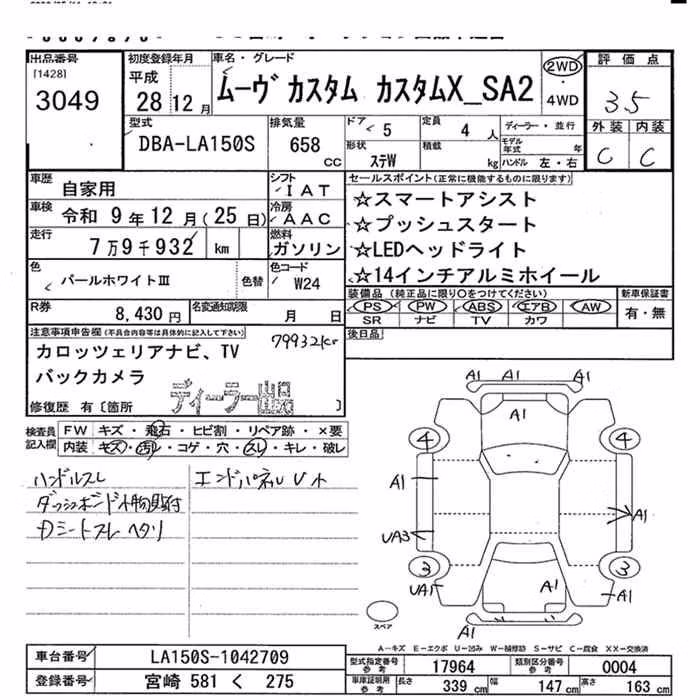 出品番号
[1428]
3049
初度登録年月
平成
28 12 月
車名・グレード
ムーヴ カスタム カスタムX_SA2
2WD
4WD
評価点
3.5
外装 内装
C C
型式
DBA-LA150S
排気量
658 CC
ドア 5
定員 4 人
形状 ステW
積載 kg
ディーラー・並行
モデル年式 年
ハンドル 左・右
車歴 自家用
シフト IAT
車検 令和 9年12月(25日)
冷房 AAC
走行 7万9千932 km
燃料 ガソリン
色 パールホワイトIII
色替
色コード W24
セールスポイント(正常に機能するものに限ります)
☆スマートアシスト
☆プッシュスタート
☆LEDヘッドライト
☆14インチアルミホイール
R券 8,430 円
名変通知期限 月 日
装備品(純正品に限り○をつけてください)
PS PW ABS エアB AW
SR ナビ TV カワ
新車保証書
有・無
注意事項申告欄(不具合内容等は具体的に記入して下さい)
カロッツェリアナビ、TV
バックカメラ
79932km
ディーラー出品
修復歴 有〔箇所 〕
後日品
検査員記入欄
FW キズ・飛石・ヒビ割・リペア跡・×要
内装 キズ・汚レ・コゲ・穴・スレ・キレ・破レ
ハンドルスレ
ダッシュボード小物貼付
Dシートスレ ヘタリ
エンドパネルUト
A1 A1 A1
A1
4 4
A1
A1
UA3
3 3
UA1
A1
A1
A1
スペア
A-キズ E-エクボ U-凹み W-補修跡 S-サビ C-腐食 XX-交換済
車台番号 LA150S-1042709
登録番号 宮崎 581 く 275
型式指定番号 参考 17964
類別区分番号 参考 0004
車庫証明用 参考 長さ 339 cm 幅 147 cm 高さ 163 cm